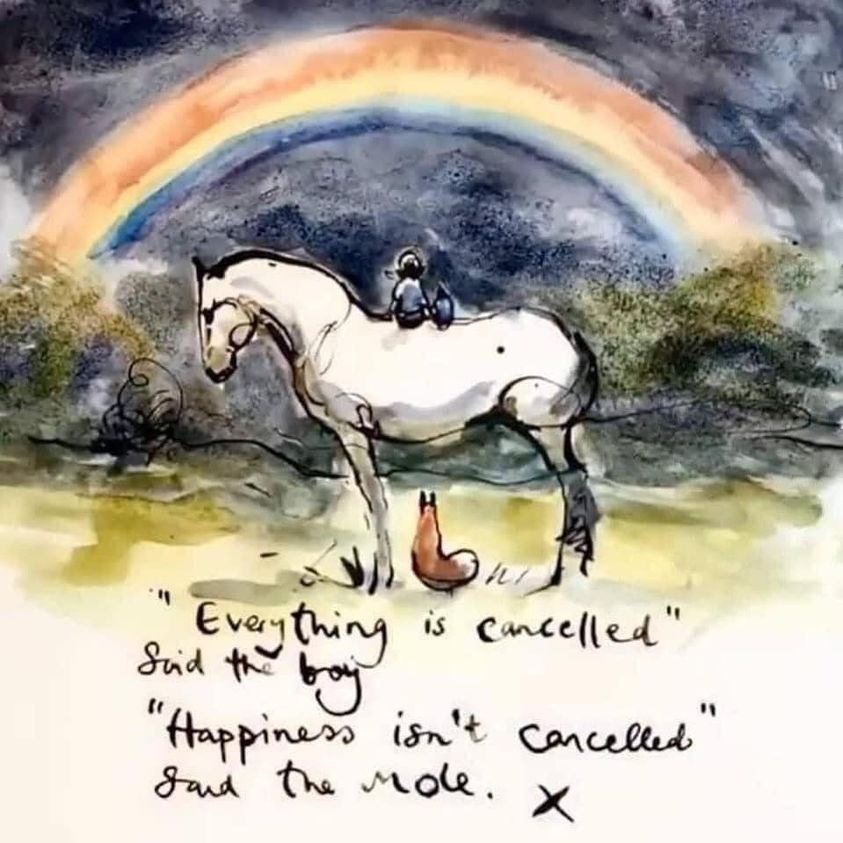 "Everything is cancelled"
Said the boy
"Happiness isn't cancelled"
Said the mole. x